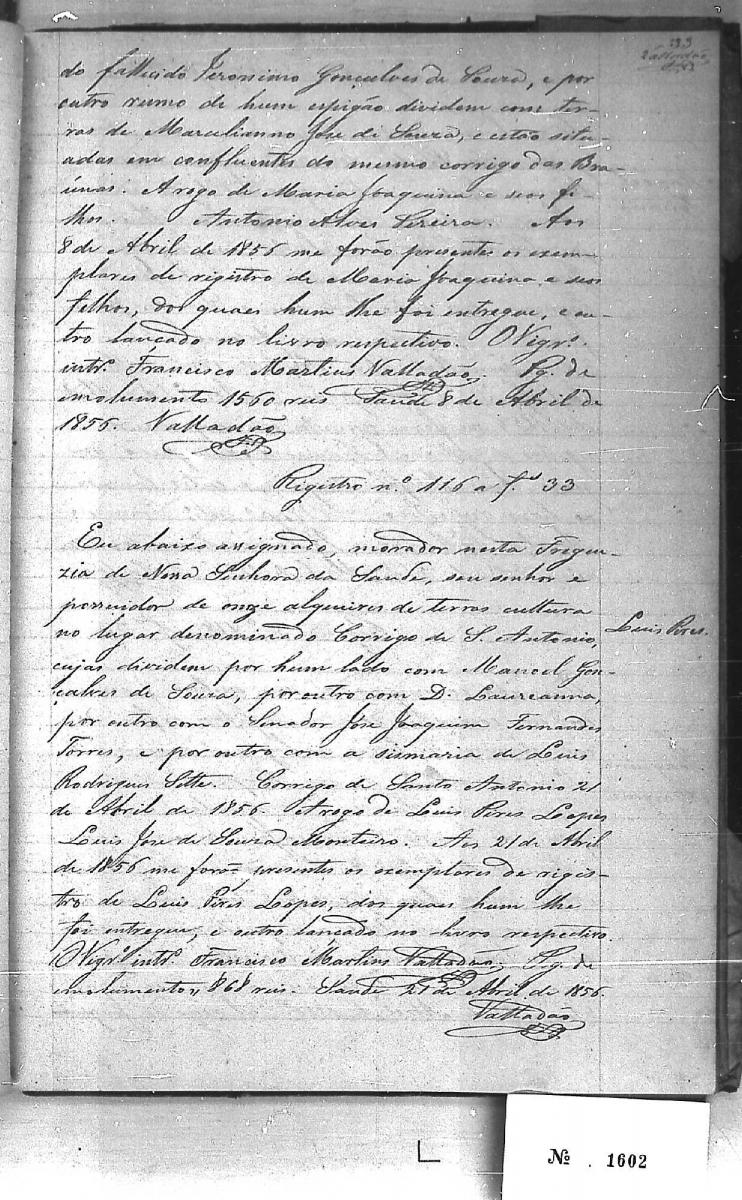 33
Valladão
do fallecido Jeronimo Gonçalves de Souza, e por
outro rumo de hum espigão dividem com ter-
ras de Marcelianno José de Souza, e estão situ-
adas em confluentes do mesmo corrigo das Bra-
únas. A rogo de Maria Joaquina e seos fi-
lhos. Antonio Alves Pereira. Aos
8 de Abril de 1856 me forão presentes os exem-
plares de registro de Maria Joaquina e seos
felhos, dos quaes hum lhe foi entregue, e ou-
tro lançado no livro respectivo. O Vigrº.
intrº. Francisco Martins Valladão. Pg. de
emolumento 1560 reis Saude 8 de Abril de
1856. Valladão
Registro n.º 116 a f.s 33
Eu abaixo assignado, morador nesta Fregue-
zia de Nossa Senhora da Saude, sou senhor e
possuidor de onze alqueires de terras cultura
no lugar denominado Corrigo de S. Antonio,
Luis Pires.
cujas dividem por hum lado com Manoel Gon-
çalves de Souza, por outro com D. Laureanna,
por outro com o Senador José Joaquim Fernandes
Torres, e por outro com a sismaria de Luis
Rodrigues Sette. Corrigo de Santo Antonio 21
de Abril de 1856. A rogo de Luis Pires Lopes
Luis José de Souza Monteiro. Aos 21 de Abril
de 1856 me forão presentes os exemplares de regis-
tro de Luis Pires Lopes, dos quaes hum lhe
foi entregue, e outro lançado no livro respectivo.
O Vigrº. intrº. Francisco Martins Valladão. Pg. de
emolumento 868 reis. Saude 21 de Abril de 1856.
Valladão
Nº . 1602